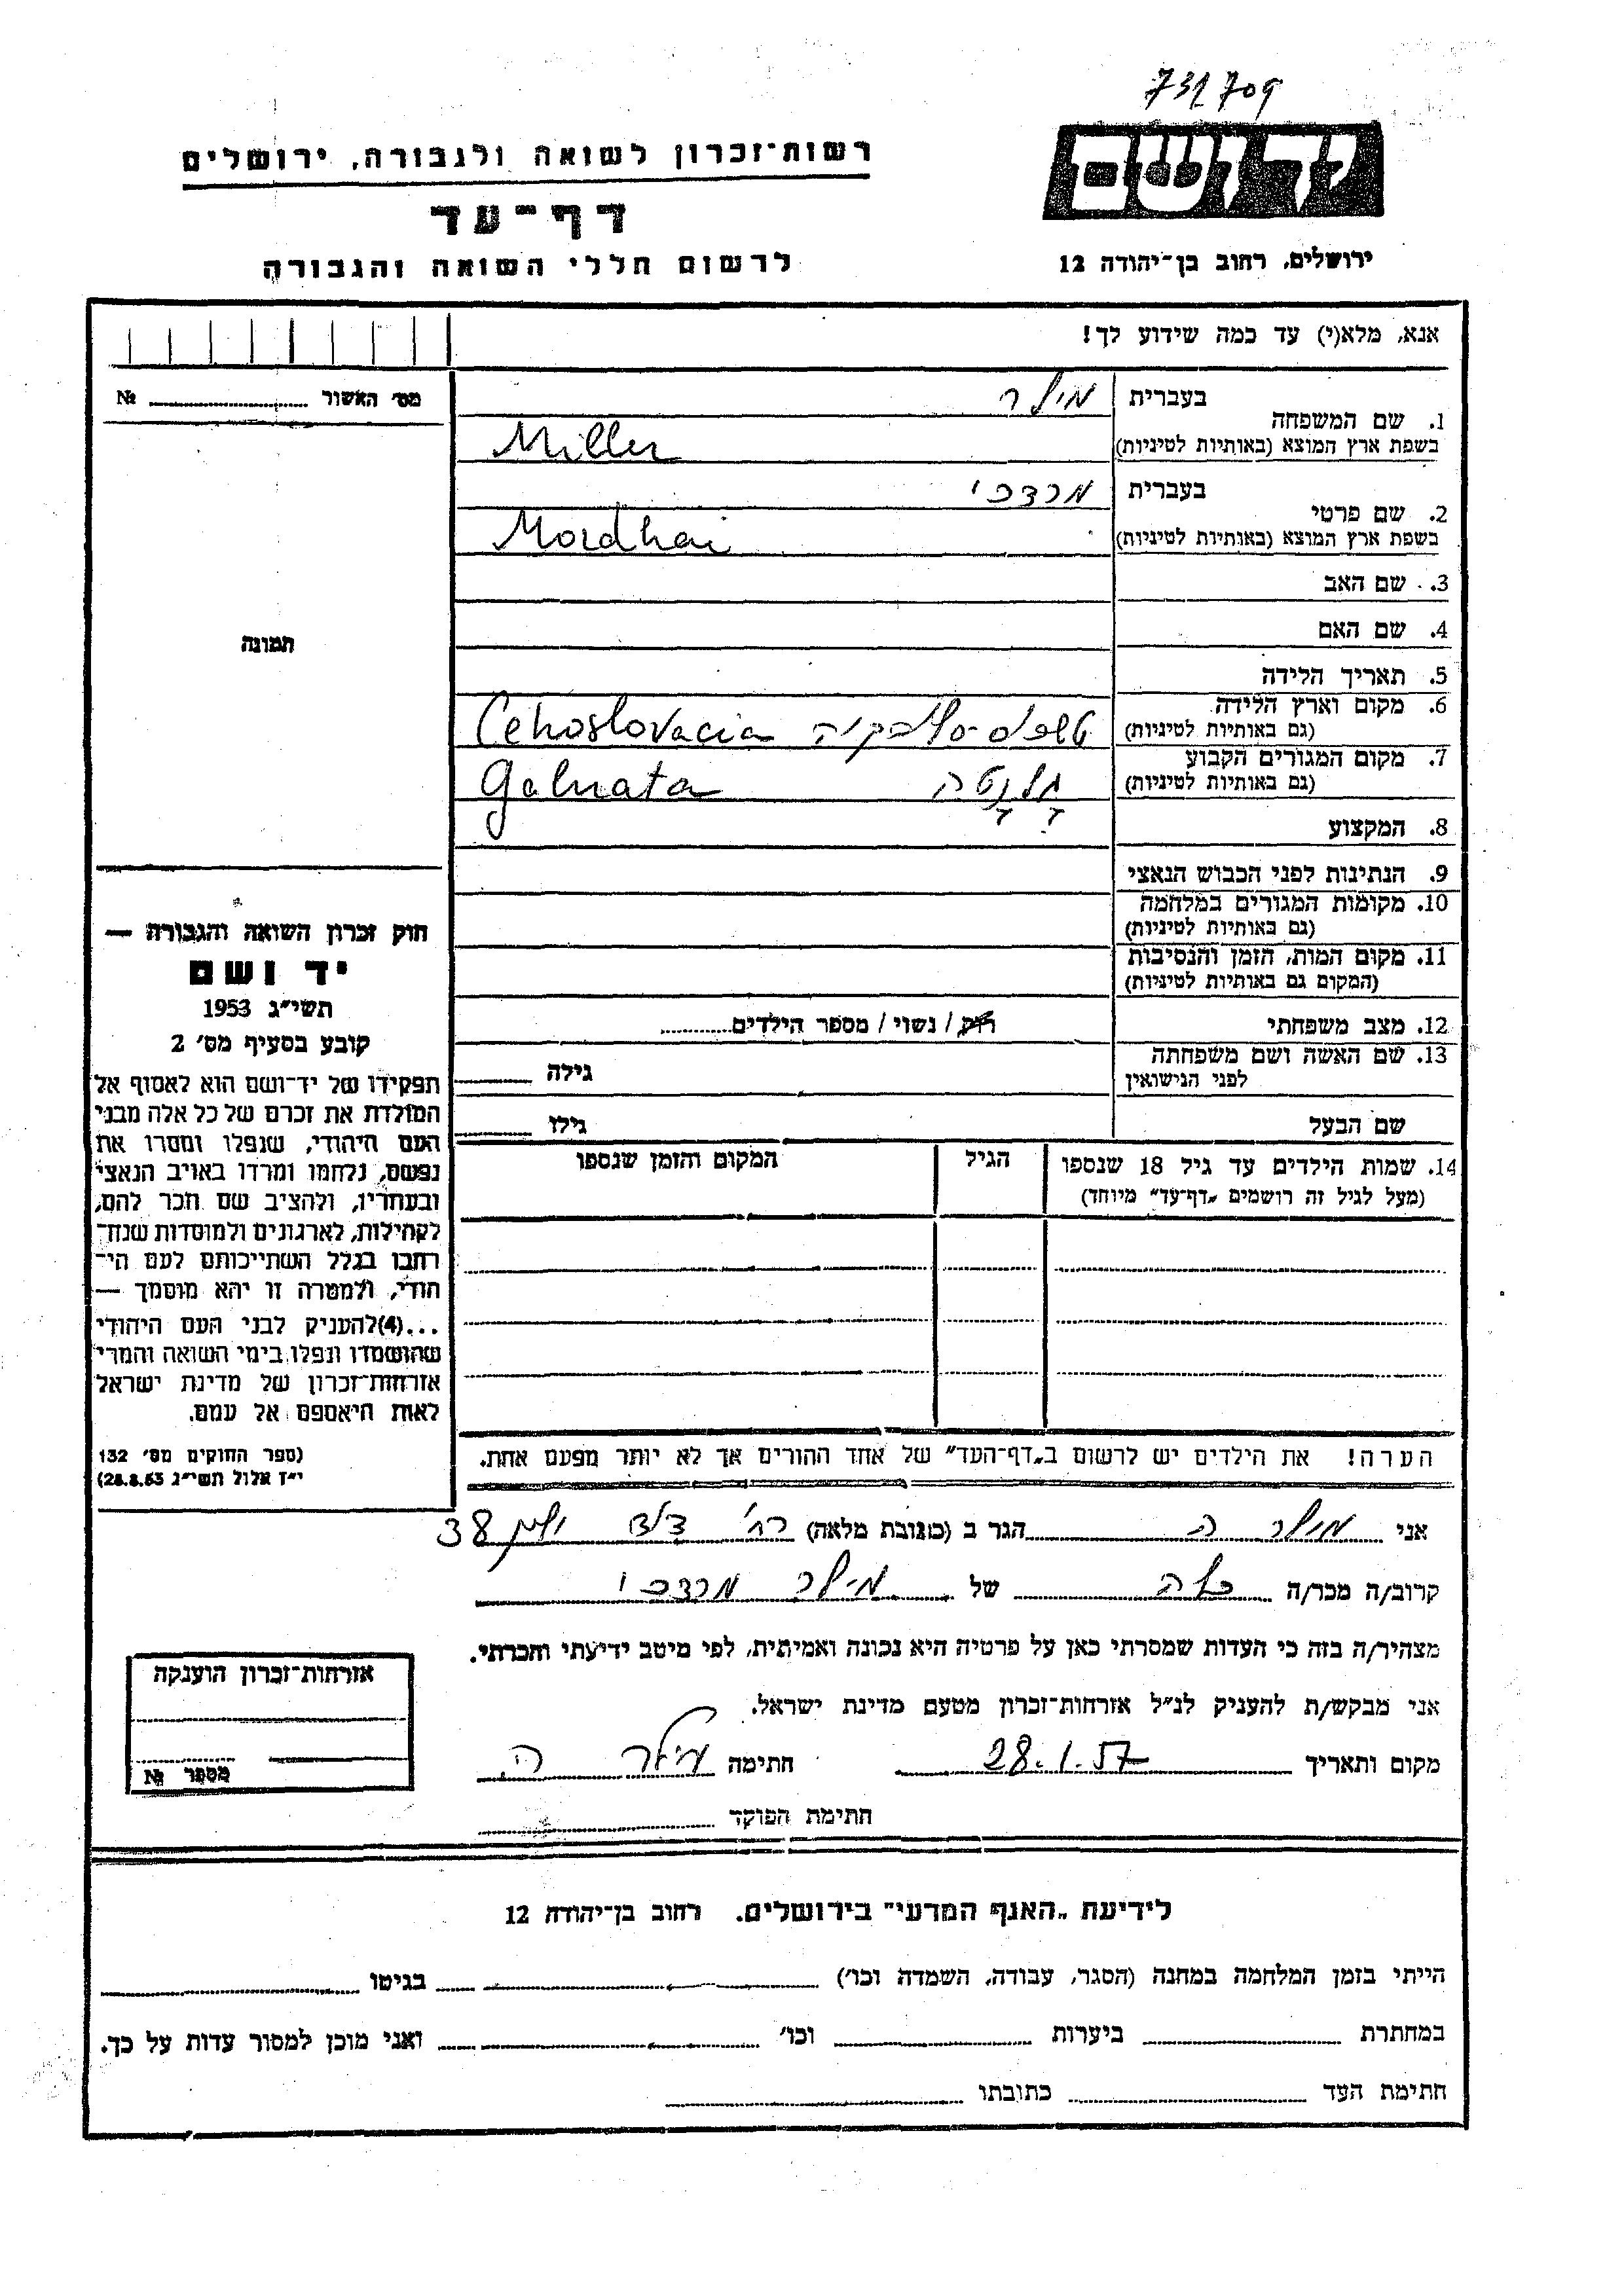 731709
יד ושם
ירושלים, רחוב בן־יהודה 12
רשות־זכרון לשואה ולגבורה, ירושלים
דף־עד
לרשום חללי השואה והגבורה
אנא, מלא(י) עד כמה שידוע לך!
מס׳ האשור № 
תמונה
1. שם המשפחה
בעברית מילר
בשפת ארץ המוצא (באותיות לטיניות) Miller
2. שם פרטי
בעברית מרדכי
בשפת ארץ המוצא (באותיות לטיניות) Mordhai
3. שם האב
4. שם האם
5. תאריך הלידה
6. מקום וארץ הלידה
(גם באותיות לטיניות) Cehoslovacia
7. מקום המגורים הקבוע
(גם באותיות לטיניות) גלנטה Galnata
8. המקצוע
9. הנתינות לפני הכבוש הנאצי
10. מקומות המגורים במלחמה
(גם באותיות לטיניות)
11. מקום המות, הזמן והנסיבות
(המקום גם באותיות לטיניות)
12. מצב משפחתי רוק / נשוי / מספר הילדים
13. שם האשה ושם משפחתה
לפני הנישואין גילה
שם הבעל גילו
14. שמות הילדים עד גיל 18 שנספו הגיל המקום והזמן שנספו
(מעל לגיל זה רושמים „דף־עד״ מיוחד)
הערה! את הילדים יש לרשום ב„דף־העד״ של אחד ההורים אך לא יותר מפעם אחת.
חוק זכרון השואה והגבורה —
יד ושם
תשי״ג 1953
קובע בסעיף מס׳ 2
תפקידו של יד־ושם הוא לאסוף אל
המולדת את זכרם של כל אלה מבני
העם היהודי, שנפלו ומסרו את
נפשם, נלחמו ומרדו באויב הנאצי
ובעוזריו, ולהציב שם וזכר להם,
לקהילות, לארגונים ולמוסדות שנח־
רבו בגלל השתייכותם לעם הי־
הודי, ולמטרה זו יהא מוסמך —
...(4) להעניק לבני העם היהודי
שהושמדו ונפלו בימי השואה והמרי
אזרחות־זכרון של מדינת ישראל
לאות היאספם אל עמם.
(ספר החוקים מס׳ 132
י״ז אלול תשי״ג 28.8.53)
אני מילר ה הגר ב (כתובת מלאה) רח׳ 38
קרוב/ה מכר/ה כלה של מילר מרדכי
מצהיר/ה בזה כי העדות שמסרתי כאן על פרטיה היא נכונה ואמיתית, לפי מיטב ידיעתי והכרתי.
אני מבקש/ת להעניק לנ״ל אזרחות־זכרון מטעם מדינת ישראל.
מקום ותאריך 28.1.57 חתימה מילר ה.
חתימת הפוקד
אזרחות־זכרון הוענקה
מספר №
לידיעת „האגף המדעי״ בירושלים. רחוב בן־יהודה 12
הייתי בזמן המלחמה במחנה (הסגר, עבודה, השמדה וכו׳) בגיטו
במחתרת ביערות וכו׳ ואני מוכן למסור עדות על כך.
חתימת העד כתובתו